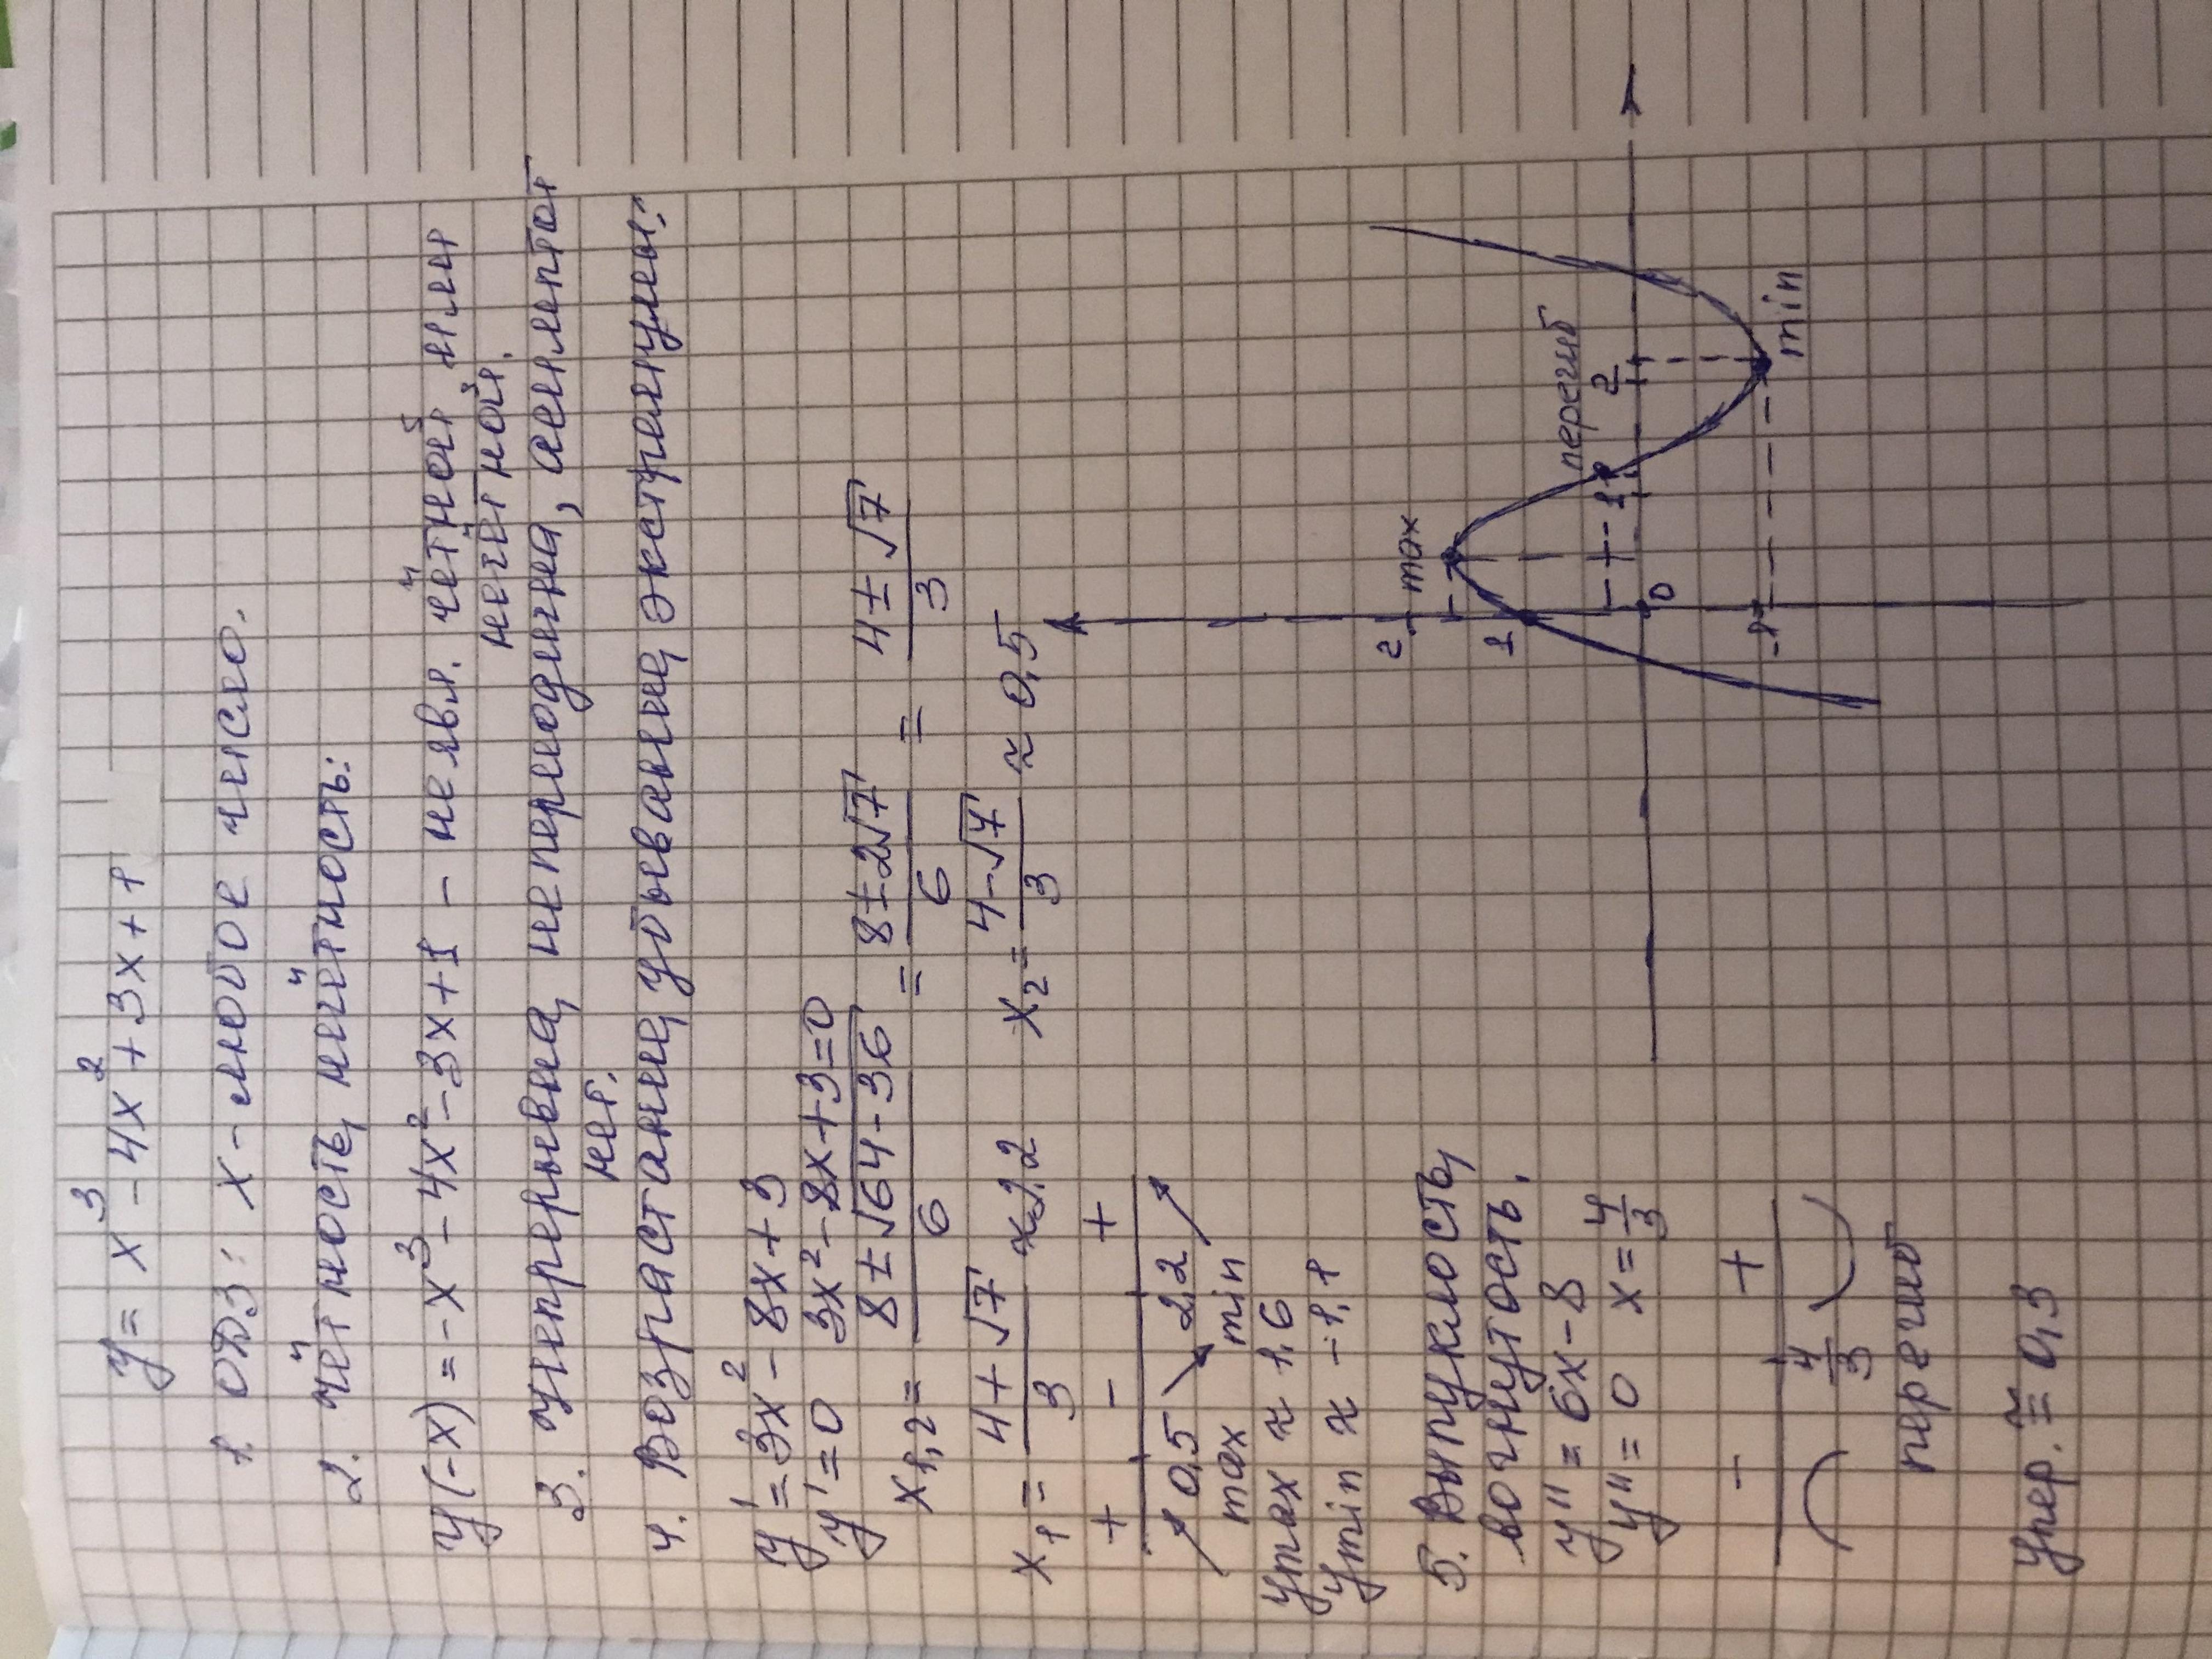 y = x³ - 4x² + 3x + 1
1. ОДЗ: x - любое число.
2. чётность, нечётность:
y(-x) = -x³ - 4x² - 3x + 1 - не явл. чётной или
нечётной.
3. непрерывна, непериодична, асимптот
нет.
4. Возрастание, убывание, экстремумы:
y' = 3x² - 8x + 3
y' = 0 3x² - 8x + 3 = 0
x₁,₂ = (8 ± √(64 - 36))/6 = (8 ± 2√7)/6 = (4 ± √7)/3
x₁ = (4 + √7)/3 ≈ 2,2 x₂ = (4 - √7)/3 ≈ 0,5
+ - +
0,5 2,2
max min
ymax ≈ 1,6
ymin ≈ -1,1
5. Выпуклость,
вогнутость.
y'' = 6x - 8
y'' = 0 x = 4/3
- +
4/3
перегиб
yпер. ≅ 0,3
2 max
1 перегиб
0 1 2
-1 min